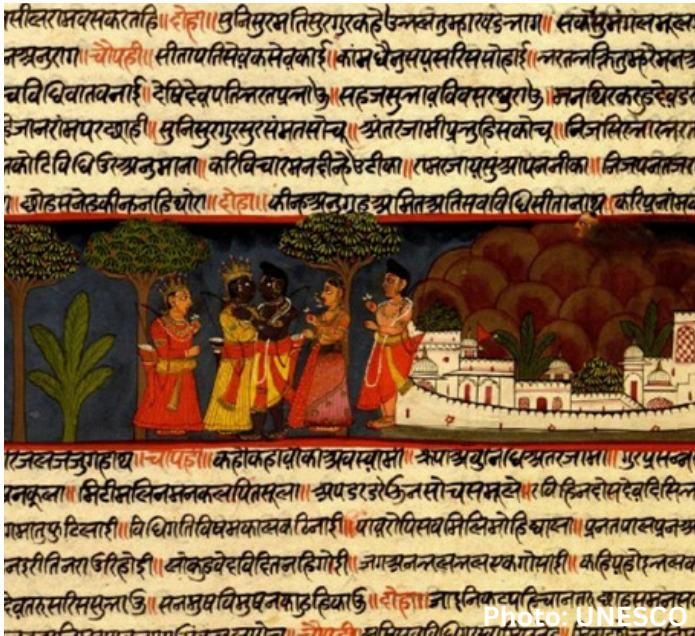 सीलरामबसकरतहि॥ दोहा॥ सुनिसुरमतिसुरगुरकहेउभलतुम्हारबडभाग॥ सकलसुमंगलमूल
नअनुराग॥ चौपही॥ सीतापतिसेवकसेवकाई॥ कामधेनुसयसरिससोहाई॥ भरतभक्तितुम्हरेमनअ
चविधिबातबनाई॥ देषिदेवपतिभरतप्रभाउ॥ सहजसुभावविवसरघुराउ॥ मनथिरकरहुदेवड
जानरामपरछाही॥ सुनिसुरगुरसुरसंमतसोचू॥ अंतरजामीप्रभुहिसकोचू॥ निजसिरभारभर
तकोटिविधिउरअनुमाना॥ करिविचारमनदीन्हेउटीका॥ रामरजायसुआपननीका॥ निजपनतजरा
॥ छोहसनेहकीन्हनहिथोरा॥ दोहा॥ कीन्हअनुग्रहअमितअतिसबविधिसीतानाथ॥ करिप्रनामब
रिजलजजुगहाथ॥ चौपही॥ कहौकहावौकाअबस्वामी॥ कृपाअंबुनिधिअंतरजामी॥ गुरप्रसन्न
नकूला॥ मिटीमलिनमनकलपितसूला॥ अपडरडरेउनसोचसमूले॥ रविहिनदोसदेवदिसिभ
गमातुकुटिलाई॥ विधिगतिविषमकालकठिनाई॥ पावरोपिसबमिलिमोहिघाला॥ प्रनतपालपनअ
नइरीतिनराउरिहोई॥ लोकहुवेदविदितनहिगोई॥ जगअनभलभलएकगोसाई॥ कहिएहोइभलक
देवतरुसरिससुभाउ॥ सनमुषविमुषनकाहुहिकाउ॥ दोहा॥ जाइनिकटपहिचानतरुछाहसमनस
Photo: UNESCO